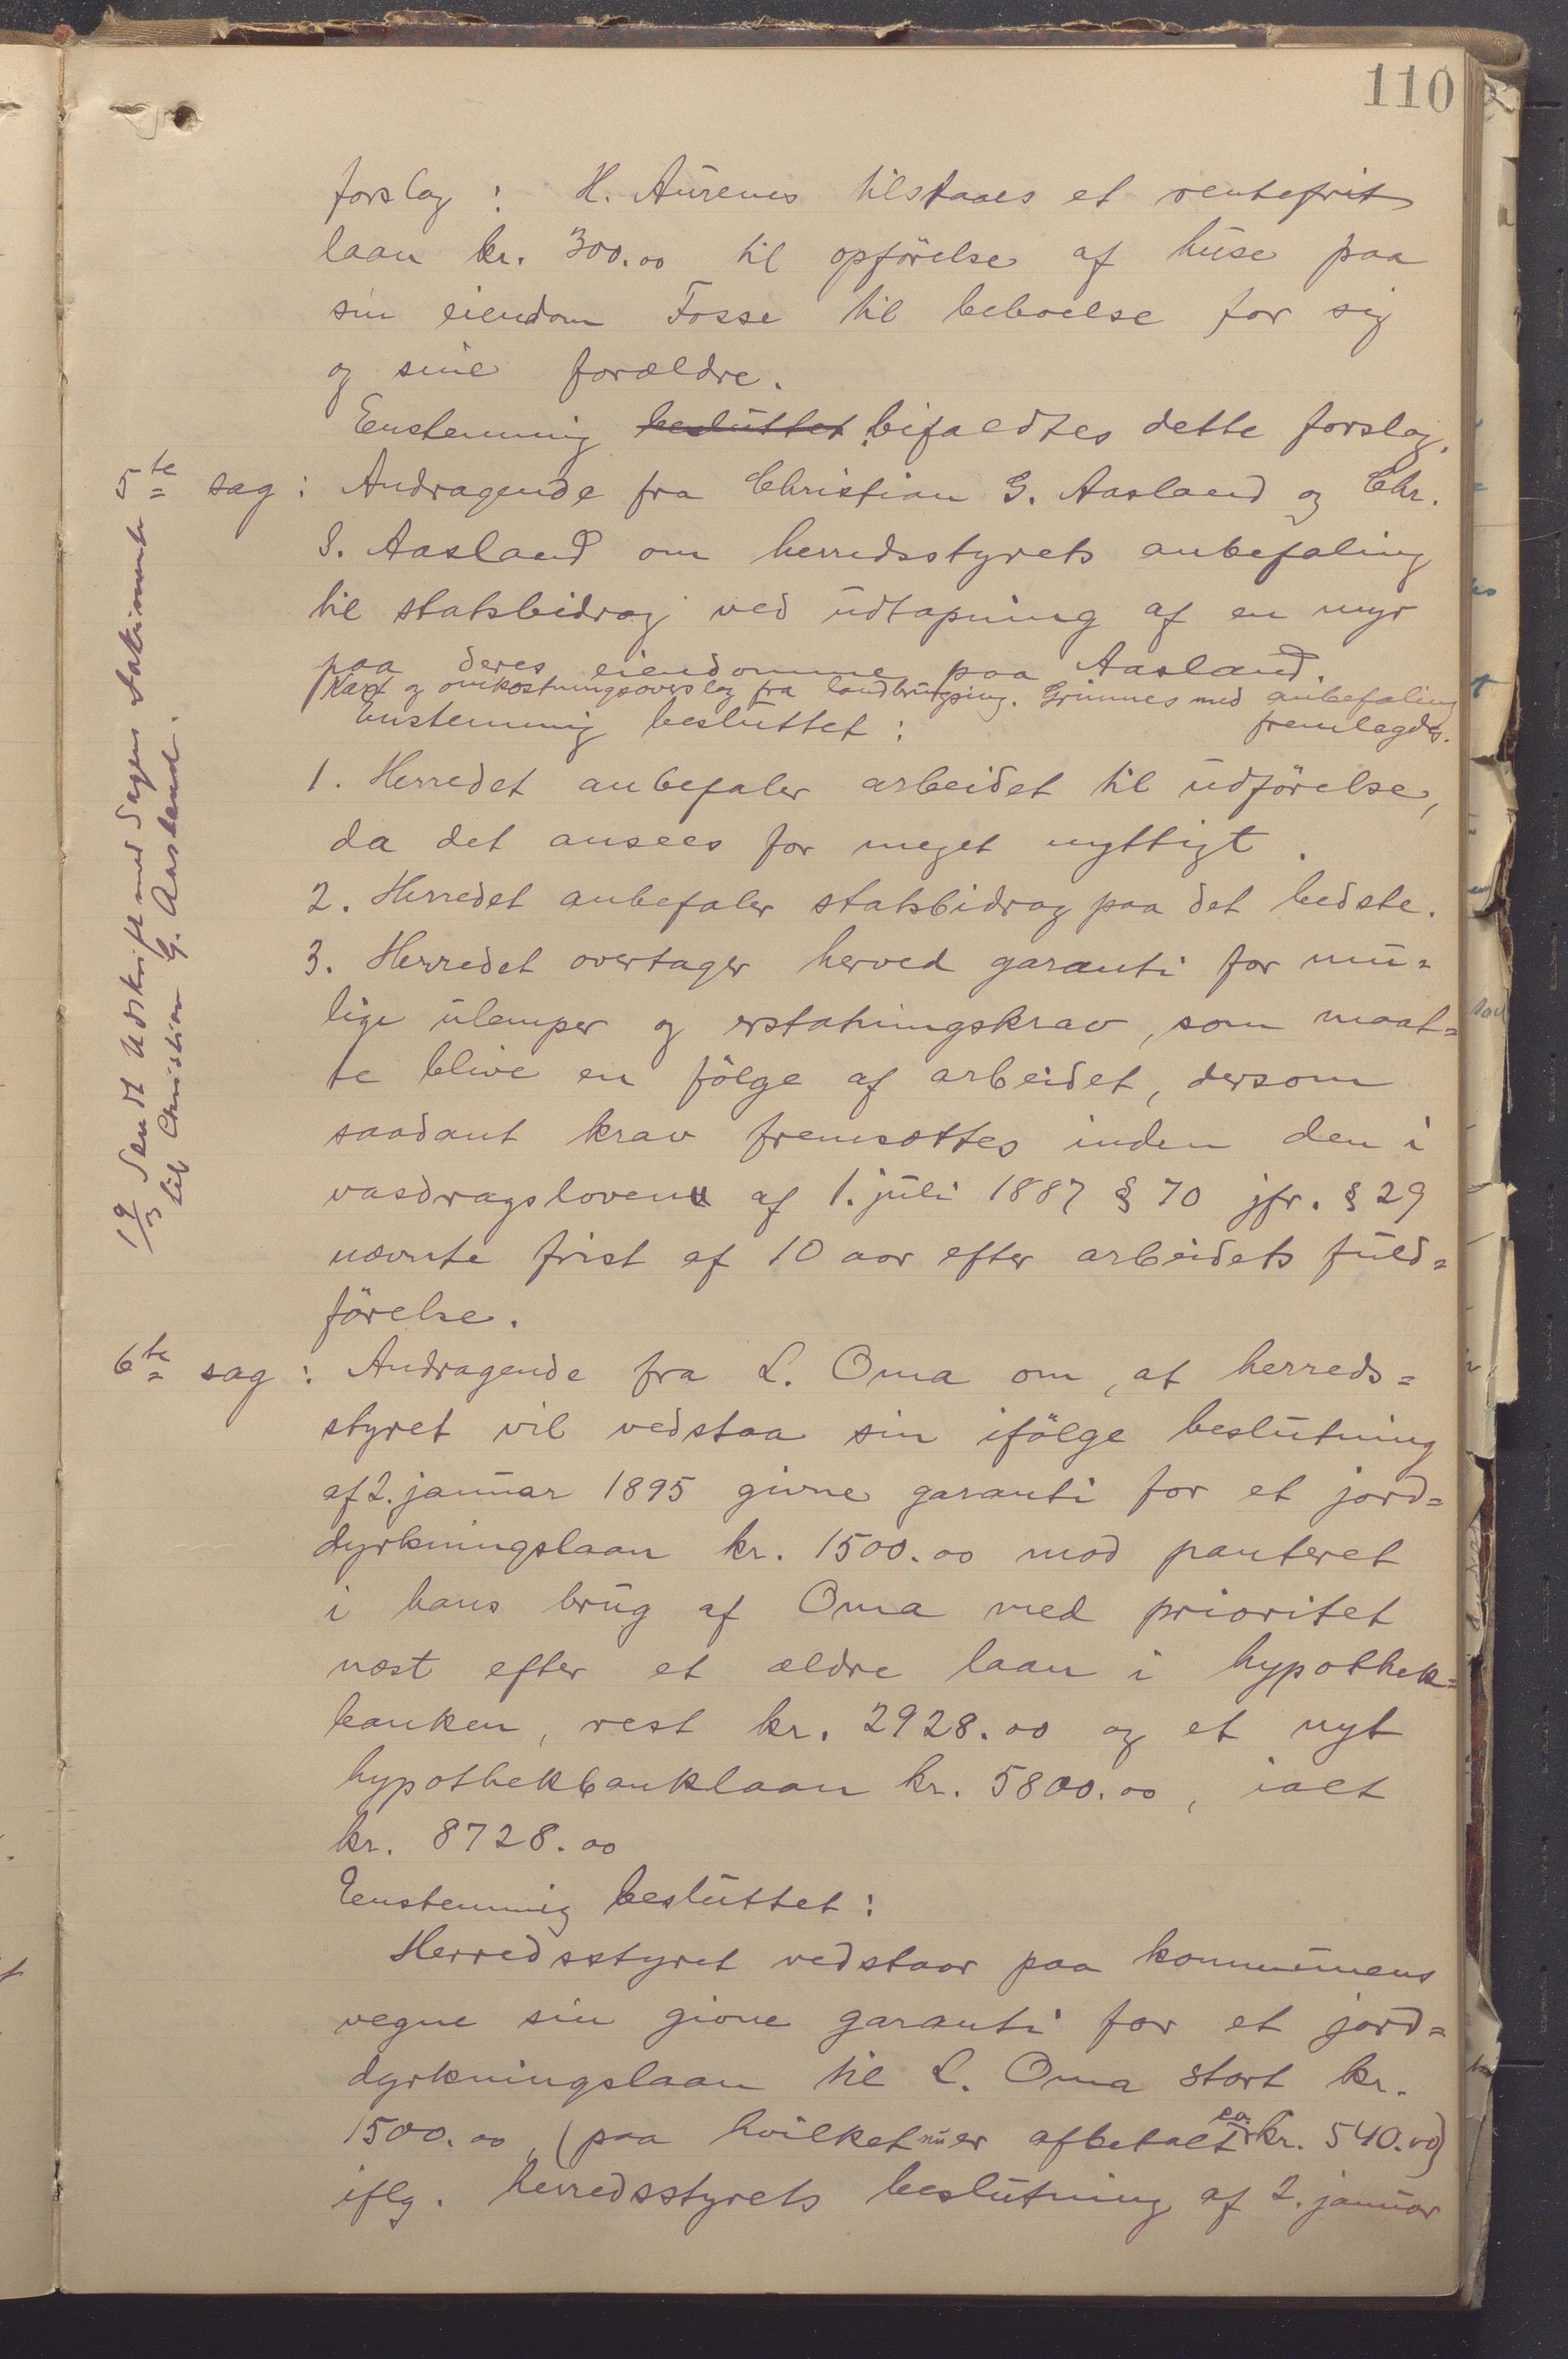 110
forslag : H. Aurenes tilstaaes et rentefrit
laan kr. 300.00 til opförelse af huse paa
sin eiendom Fosse til beboelse for sig
og sine forældre.
Enstemmig besluttet bifaldtes dette forslag.
5te sag : Andragende fra Christian G. Aasland og Chr.
S. Aasland om herredsstyrets anbefaling
til statsbidrag ved udtapning af en myr
paa deres eiendomme paa Aasland.
Kart og omkostningsoverslag fra landbrugsing. Grimnes med anbefaling
fremlagdes.
Enstemmig besluttet :
1. Herredet anbefaler arbeidet til udförelse,
da det ansees for meget nyttigt.
2. Herredet anbefaler statsbidrag paa det bedste.
3. Herredet overtager herved garanti for mu=
lige ulemper og erstatningskrav, som maat=
te blive en fölge af arbeidet, dersom
saadant krav fremsættes inden den i
vasdragsloven af 1. juli 1887 § 70 jfr. § 29
nævnte frist af 10 aar efter arbeidets fuld=
förelse.
19/3 Sendt Udskrift med Sagens dokumenter
til Christian G. Aasland.
6te sag : Andragende fra L. Oma om, at herreds=
styret vil vedstaa sin ifölge beslutning
af 2. januar 1895 givne garanti for et jord=
dyrkningslaan kr. 1500.00 mod panteret
i hans brug af Oma med prioritet
næst efter et ældre laan i hypothek=
banken, rest kr. 2928.00 og et nyt
hypothekbanklaan kr. 5800.00, ialt
kr. 8728.00
Enstemmig besluttet :
Herredsstyret vedstaar paa kommunens
vegne sin givne garanti for et jord=
dyrkningslaan til L. Oma stort kr.
1500.00, (paa hvilket nu er afbetalt ca. kr. 540.00)
iflg. herredsstyrets beslutning af 2. januar